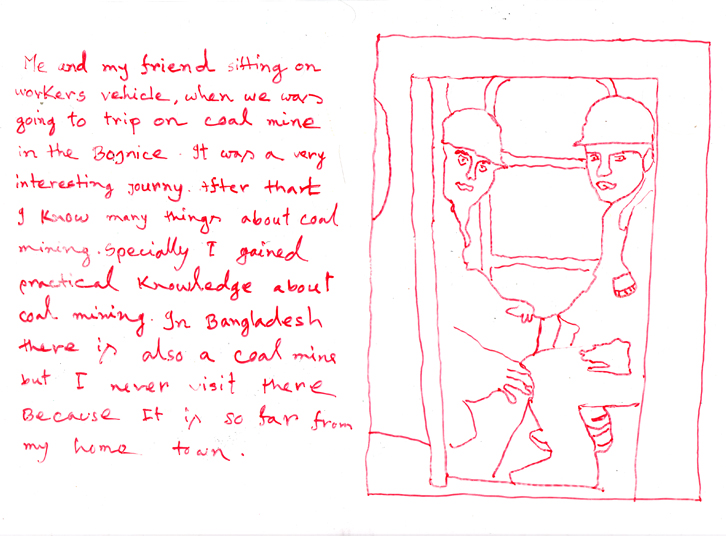 Me and my friend sitting on
workers vehicle, when we was
going to trip on coal mine
in the Bojnice. It was a very
interesting journy. After thart
I know many things about coal
mining. Specially I gained
practical knowledge about
coal mining. In Bangladesh
there is also a coal mine
but I never visit there
Because It is so far from
my home town.